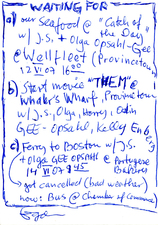 WAITING FOR
a) our Seafood @ "Catch of
the Day
w/ J.S. + Olga Opsahl-Gee
@ Wellfleet (Provincetown,
12 VI 07 16
b) Start movie "THEM" @
Whaler's Wharf, Provincetown
w/ J.S., Olga, Henry, Odin
GEE-Opsahl, Kelley
c) Ferry to Boston w/ J.S.
+ Olga GEE OPSAHL @ Portugese
14 VI 07 8 45 Bakeries
got cancelled (bad weather)
now: Bus @ Chamber of Commerce